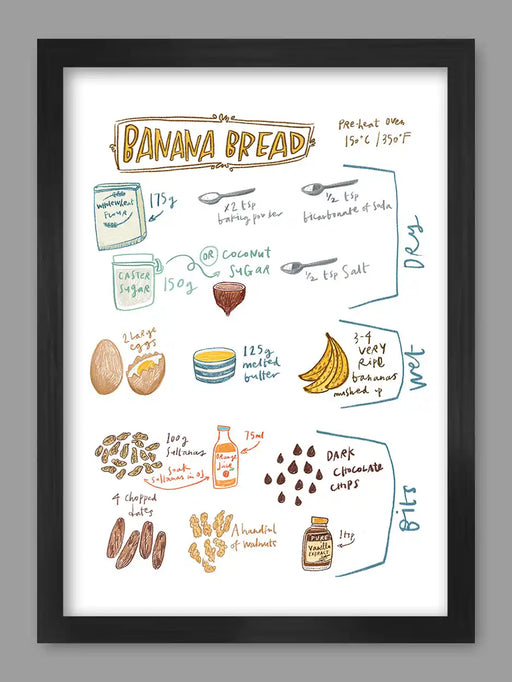 BANANA BREAD
Pre-heat oven
150°C / 350°F
wholewheat
flour
175g
x2 tsp
baking powder
1/2 tsp
bicarbonate of soda
DRY
CASTER
SUGAR
150g
OR COCONUT
SUGAR
1/2 tsp Salt
2 large
eggs
125g
melted
butter
3-4
VERY
RIPE
bananas
mushed up
Wet
100g
Sultanas
Soak
sultanas in OJ
Orange
Juice
75ml
DARK
CHOCOLATE
CHIPS
4 chopped
dates
A handful
of walnuts
PURE
Vanilla
EXTRACT
1 tsp
Bits